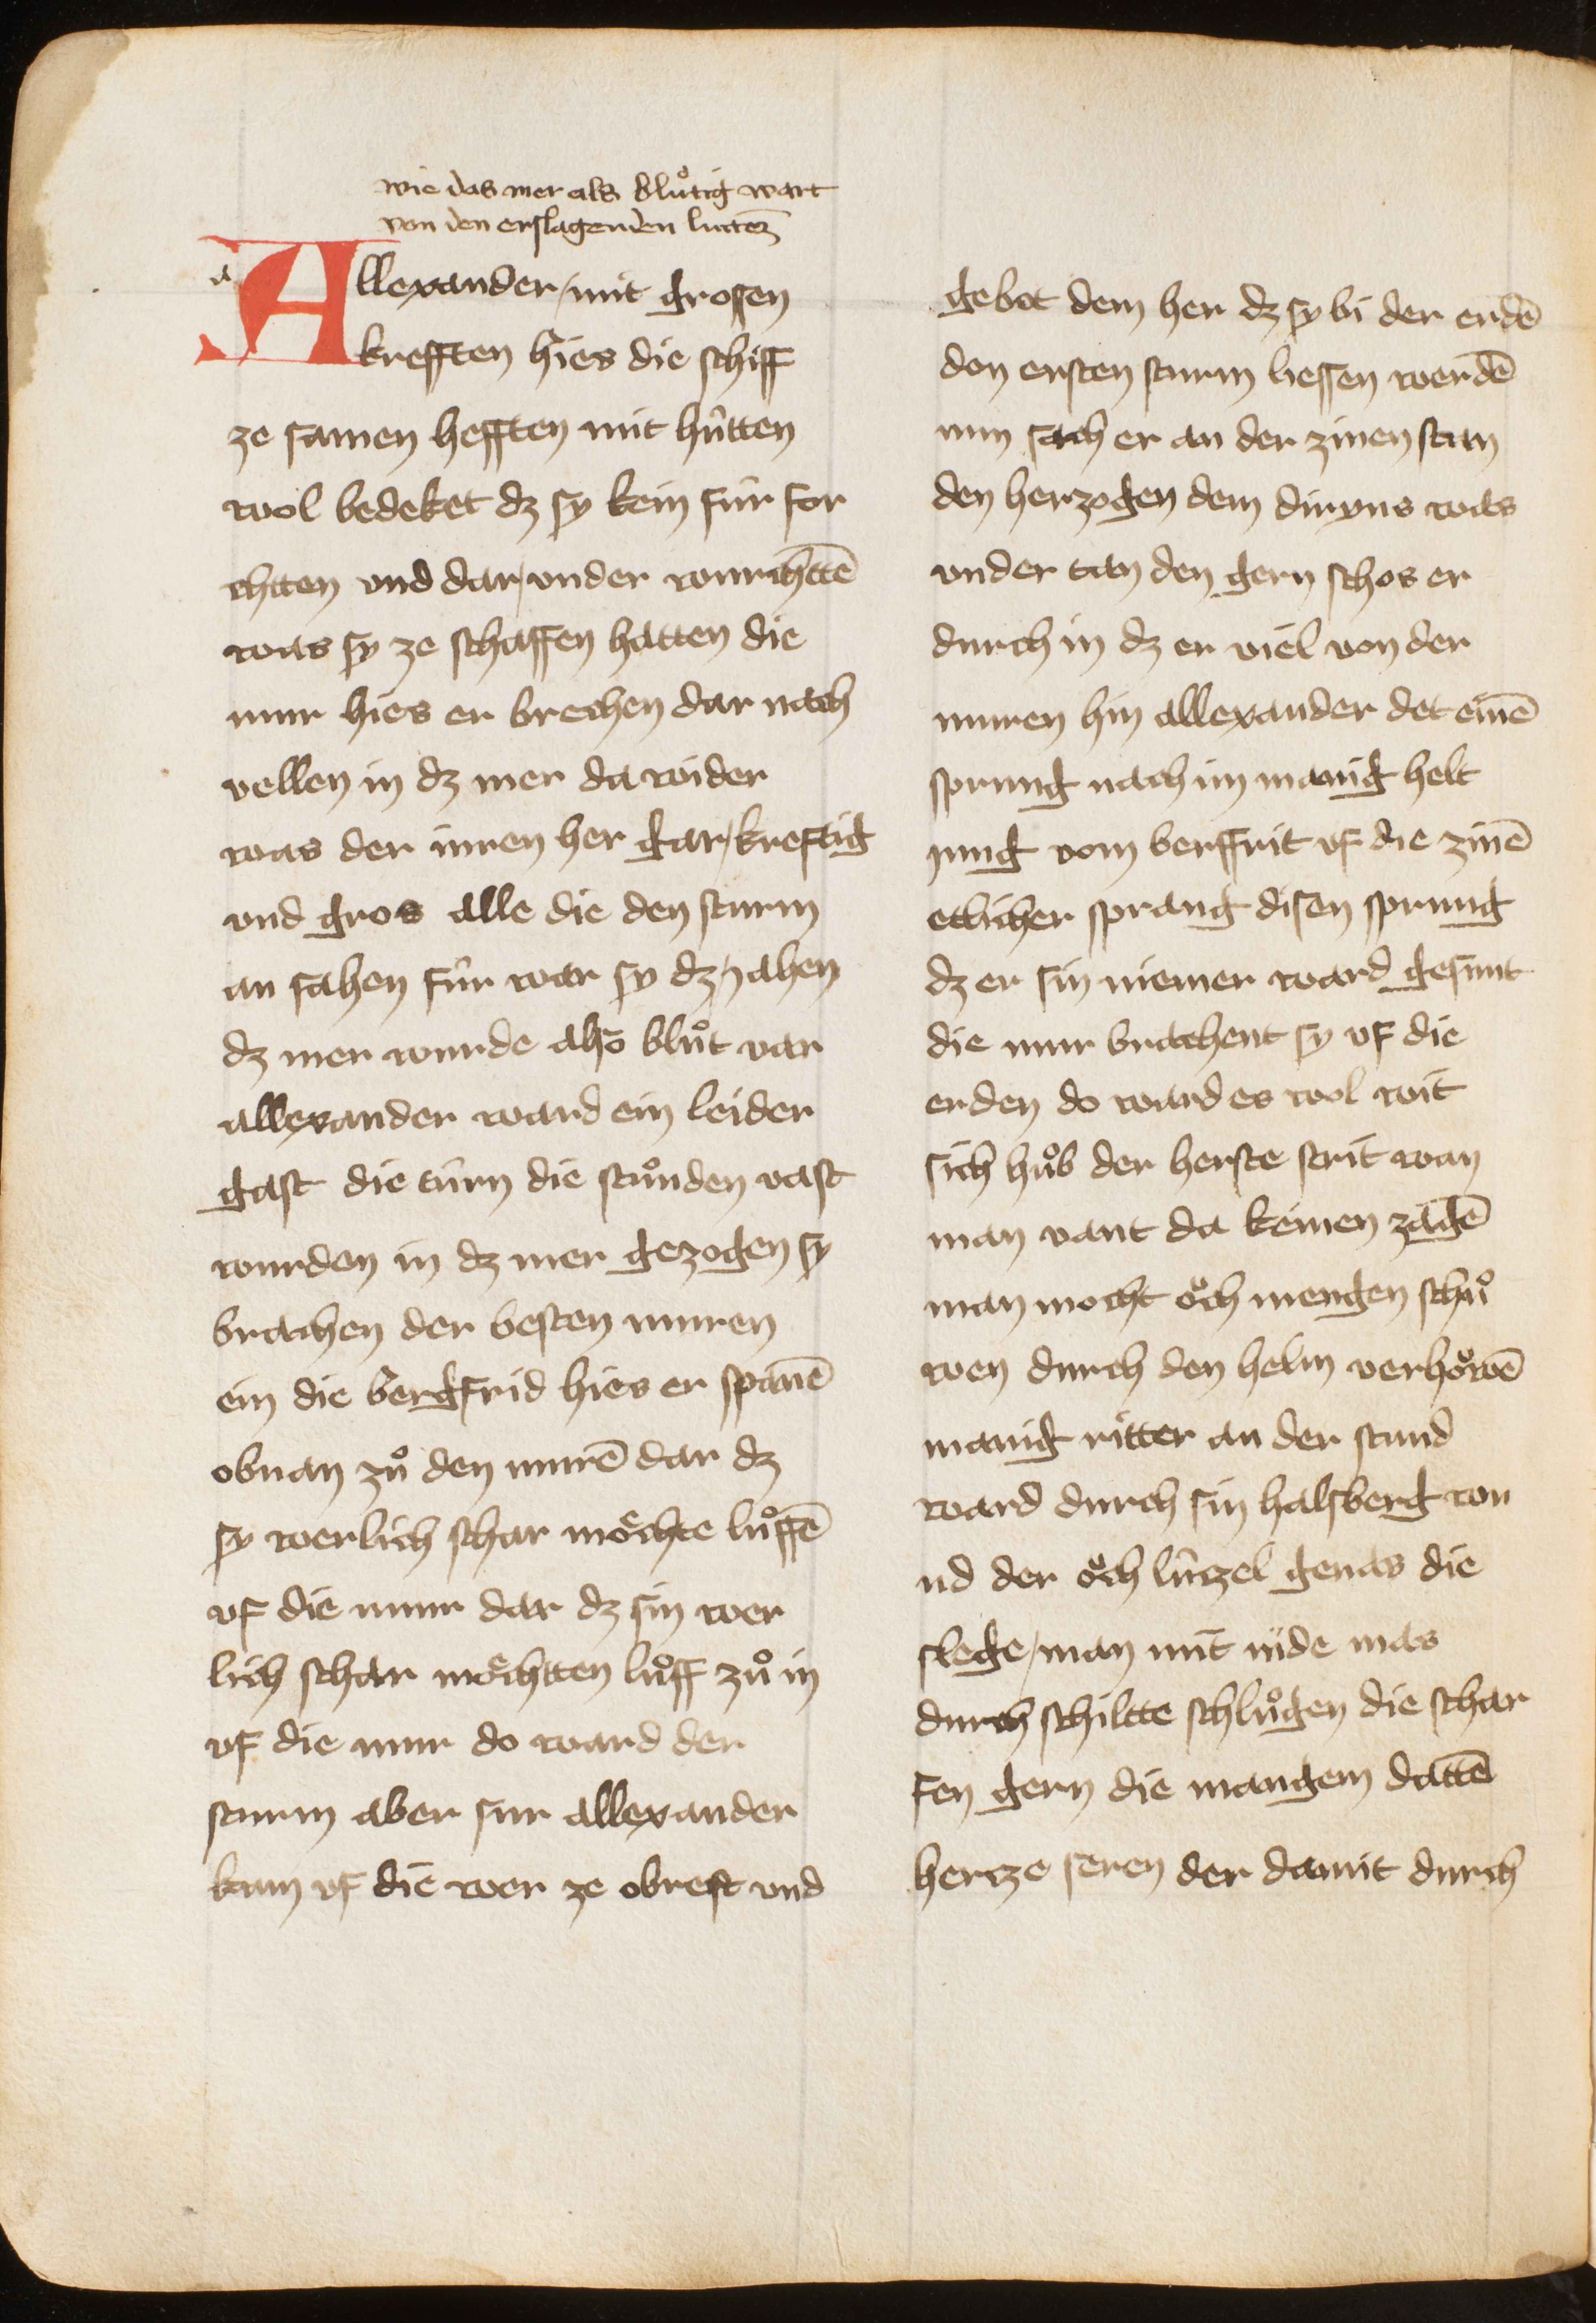 wie das mer als blůtig wart
von den erslagenden lutten
Allexander mit grossen
krefften hies die schiff
ze samen hefften mit hütten
wol bedeket dz sy kein für for
chtten vnd dar vnder wurchttē
was sy ze schaffen hatten die
mur hies er brechen dar nach
vellen in dz mer da wider
was der inren her gar kreftig
vnd gros alle die den sturm
an sahen für war sy dz jahen
dz mer wurde also blůt var
allexander ward ein leider
gast die türn die stůnden vast
wurden in dz mer gezogen sy
brachen der besten muren
ein die bergfrid hies er spanē
obnan zů den murē dar dz
sy werlich schar möchte lůffē
vf die mur dar dz sin wer
lich schar möchtten lůff zů in
vf die mur do ward der
sturm aber sur allexander
kam vf die wer ze obrest vnd
gebot dem her dz sy bi der erdē
den ersten sturm liessen werdē
nun sach er an der zinen stan
den herzogen dem diryus was
vnder tan den gern schos er
durch in dz er viel von der
muren hin allexander det einē
sprung nach im manig helt
jung vom berffrit vf die zinē
etlicher sprang disen sprung
dz er sin niemer ward gesunt
die mur brachent sy vf die
erden do ward es wol wit
sich hůb der herste strit wan
man vant da keinen zagē
man mocht öch mengen schů
wen durch den helm verhöwē
manig ritter an der stund
ward durch sin halsberg wu
nd der öch lützel genas die
slege man mit nide mas
durch schiltte schlůgen die schar
fen gern die mangem dattē
hertze seren der damit durch